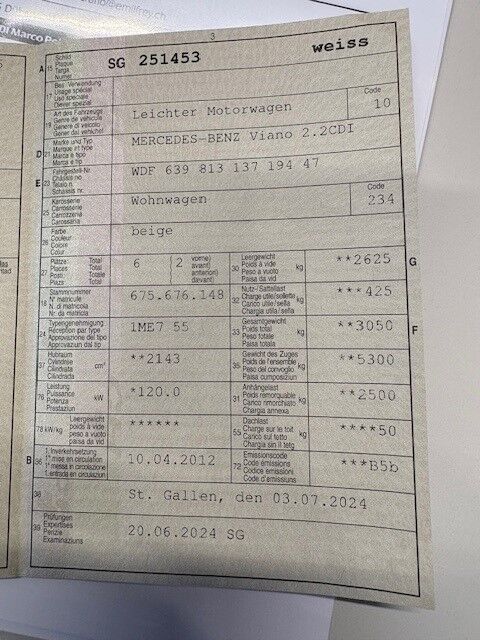 emilfrey.ch
3
A 15 Schild Plaque Targa Numer SG 251453 weiss
17 Bes. Verwendung Usage spécial Uso speciale Diever spezial
19 Art des Fahrzeuges Genre de véhicule Genere di veicolo Gener dal vehichel Leichter Motorwagen Code 10
D 21 Marke und Typ Marque et type Marca e tipo Marca e tip MERCEDES-BENZ Viano 2.2CDI
E 23 Fahrgestell-Nr. Châssis no Telaio n. Schassis nr. WDF 639 813 137 194 47
25 Karosserie Carrosserie Carrozzeria Carossaria Wohnwagen Code 234
26 Farbe Couleur Colore Colur beige
27 Plätze: Total Places Total Posti Totale Plazs: Total 6 2 vorne avant anteriori davant 30 Leergewicht Poids à vide Peso a vuoto Paisa da vid kg **2625 G
18 Stammnummer N° matricule N. di matricola Nr. da matricla 675.676.148 32 Nutz-/Sattellast Charge utile/sellette Carico utile/sella Chargia utila/sella kg ***425
24 Typengenehmigung Réception par type Approvazione del tipo Approvaziun dal tip 1ME7 55 33 Gesamtgewicht Poids total Peso totale Paisa totala kg **3050 F
37 Hubraum Cylindrée Cilindrata Cilindrada cm³ **2143 35 Gewicht des Zuges Poids de l'ensemble Peso del convoglio Paisa cumposiziun kg **5300
76 Leistung Puissance Potenza Prestaziun kW *120.0 31 Anhängelast Poids remorquable Carico rimorchiato Chargia annexa kg **2500
78 kW/kg Leergewicht poids à vide peso a vuoto paisa da vid ****** 55 Dachlast Charge sur le toit Carico sul tetto Chargia sin il tetg kg ****50
B 36 1. Inverkehrsetzung 1re mise en circulation 1a messa in circolazione 1a entrada en circulaziun 10.04.2012 72 Emissionscode Code émissions Codice emissioni Code d'emissiuns ***B5b
38 St. Gallen, den 03.07.2024
39 Prüfungen Expertises Perizie Examinaziuns 20.06.2024 SG